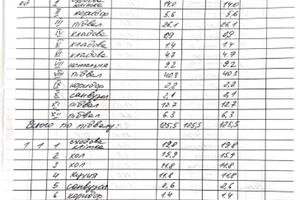 коридор 5,6 5,6
III підвал 26.1 26.1
IV кладова 0,9 0,9
V кладова 1.4 1.4
кладова 4.7 4.7
котельня 9.2 9.2
підвал 40.3 40.3
коридор 2.2 2.2
X санвузол 2,1 2,1
XI підвал 12.7 12.7
підвал 6.3 6.3
Всього по підвалу: 125,5 125,5 125,5
1 1 1 сходова клітка 19.8 19.8
2 хол 15,9 15.9
3 хол 11.8 11.8
4 кухня 11.8 11.8
5 санвузол 2,6 2.6
6 коридор 1.4 1.4